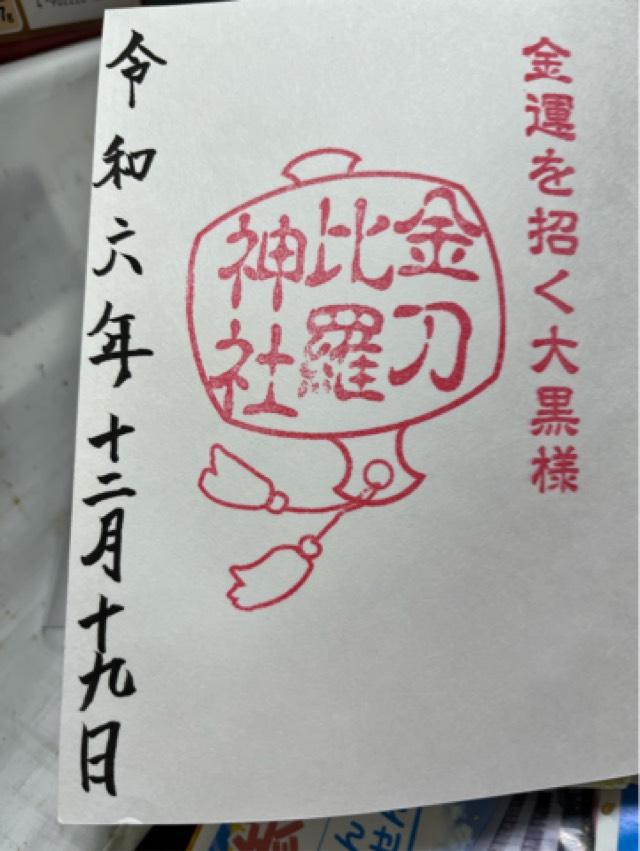 金運を招く大黒様
金刀
比羅
神社
令和六年十二月十九日